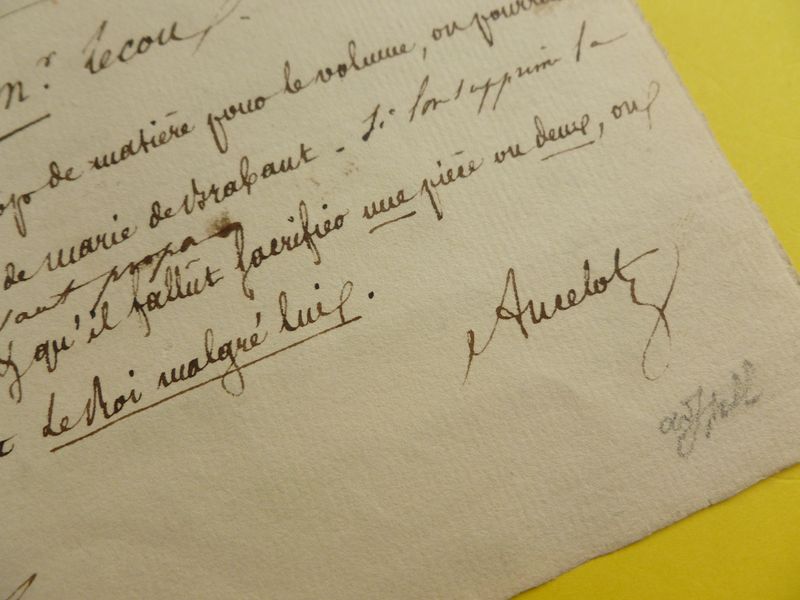 mr. Lecou.
de matière pour le volume, on pourra
de marie de Brabant - Si l'on supprime la
qu'il fallût sacrifier une pièce ou deux, on
Le Roi malgré lui.
Ancelot